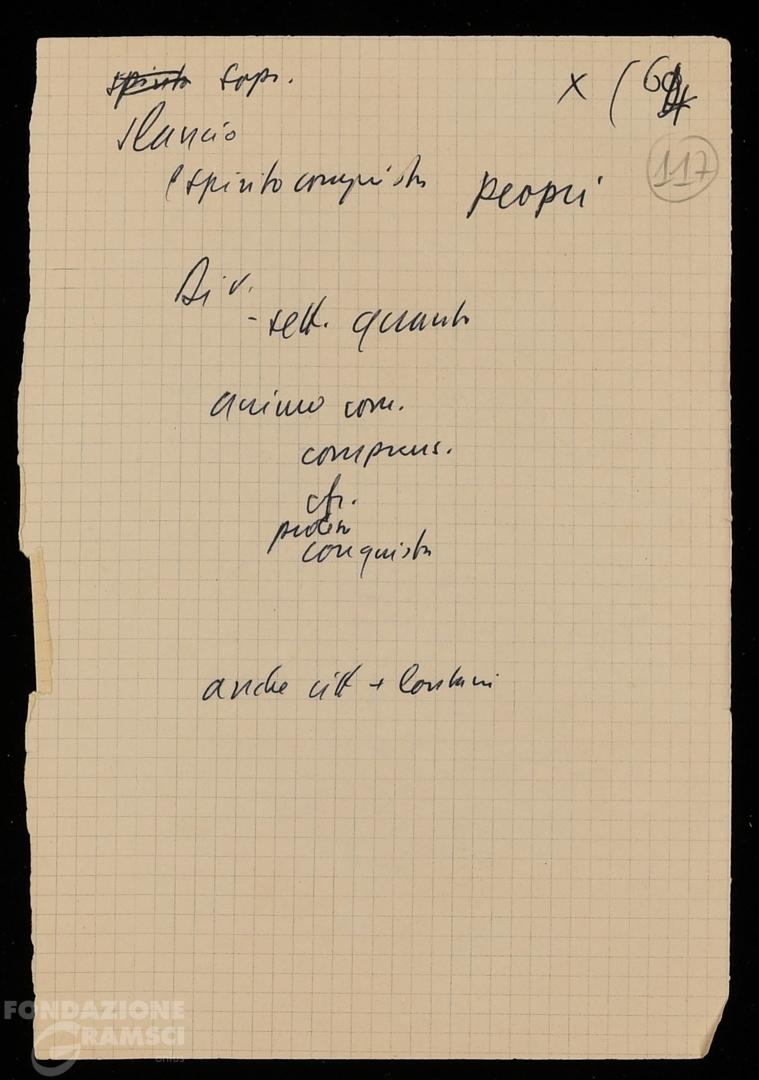 spirito sopr. x (6
slancio 117
(spirito conquista propri
Div.
- sett. quanto
animo com.
comprens.
cfr.
conquista
anche citt + lontani
FONDAZIONE
GRAMSCI
onlus